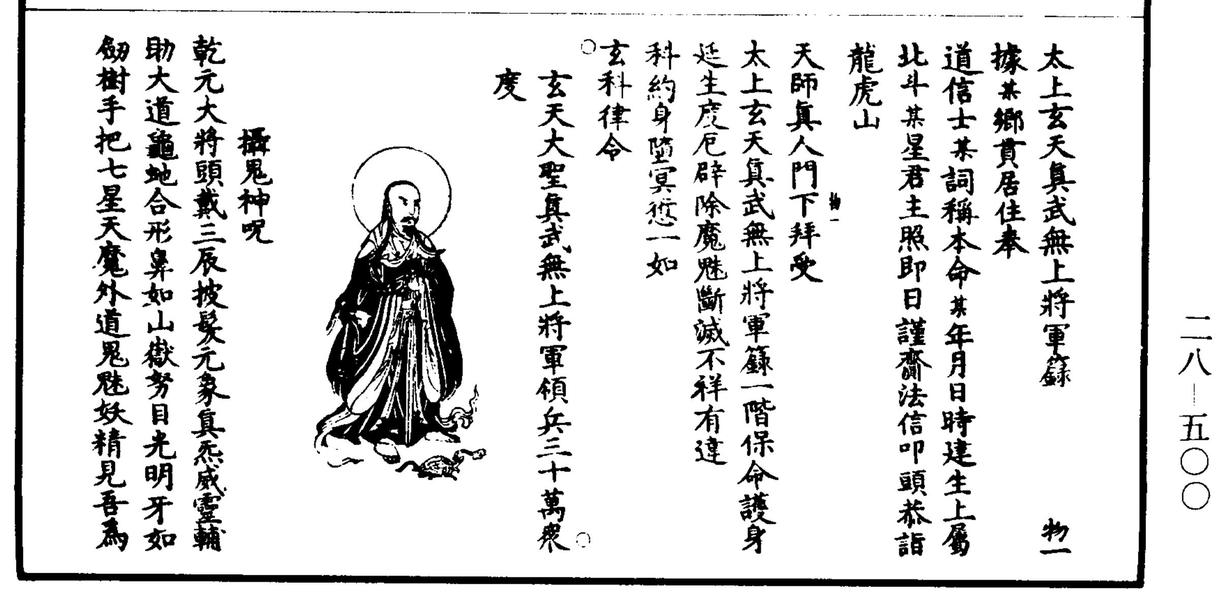 太上玄天真武無上將軍籙　物一
據某鄉貫居住奉
道信士某詞稱本命某年月日時建生上屬
北斗某星君主照即日謹齋法信叩頭恭詣
龍虎山
天師真人門下拜受
物一
太上玄天真武無上將軍籙一階保命護身
延生度厄辟除魔魅斷滅不祥有違
科約身墮冥愆一如
玄科律令
玄天大聖真武無上將軍領兵三十萬衆
度
攝鬼神呪
乾元大將頭戴三辰披髮元象真炁威靈輔
助大道龜虵合形鼻如山嶽努目光明牙如
劒樹手把七星天魔外道鬼魅妖精見吾為
二八—五〇〇